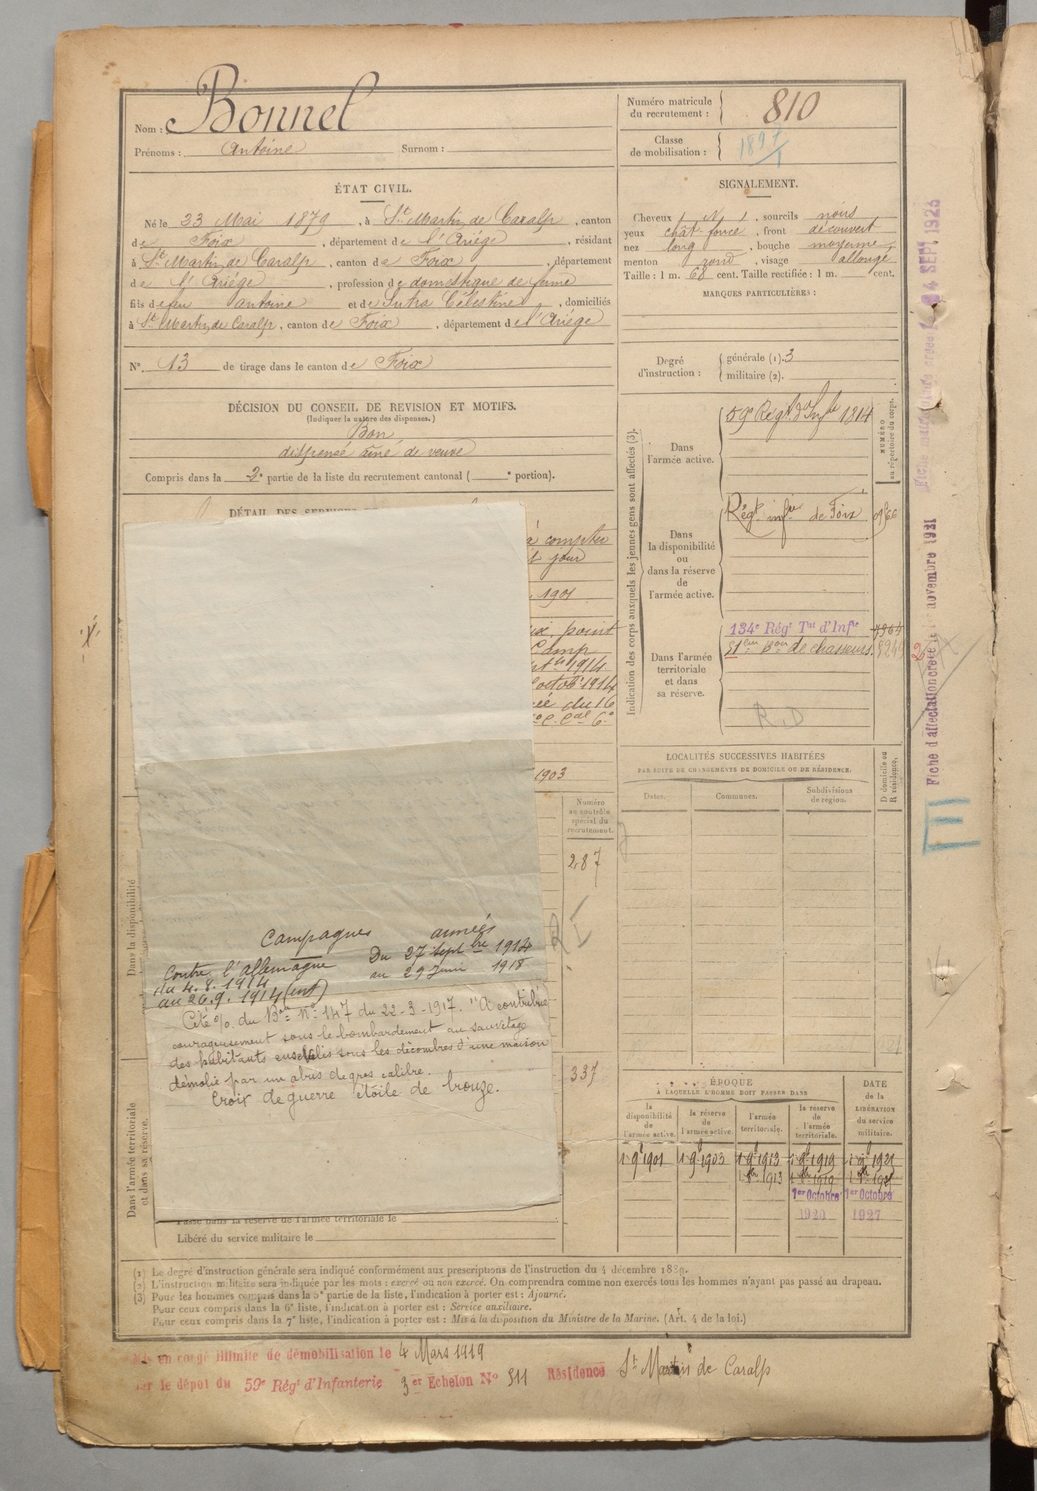 Nom : Bonnel
Prénoms : Antoine Surnom :
Numéro matricule du recrutement : 810
Classe de mobilisation : 1897
ÉTAT CIVIL.
Né le 23 Mai 1879, à St Martin de Caralp, canton
de Foix, département de l'Ariége, résidant
à St Martin de Caralp, canton de Foix, département
de l'Ariége, profession de domestique de ferme
fils de feu antoine et de Sutra Célestine, domiciliés
à St Martin de Caralp, canton de Foix, département de l'Ariége
N° 13 de tirage dans le canton de Foix
DÉCISION DU CONSEIL DE REVISION ET MOTIFS.
(Indiquer la nature des dispenses.)
Bon
dispensé aîné de veuve
Compris dans la 2e partie de la liste du recrutement cantonal ( e portion).
DÉTAIL DES SERVICES
à compter
jour
1901
point
Camp
1914
octob 1914
du 16
1903
SIGNALEMENT.
Cheveux N, sourcils noirs
yeux chat. foncé, front découvert
nez long, bouche moyenne,
menton rond, visage allongé
Taille : 1 m. 68 cent. Taille rectifiée : 1 m. cent.
MARQUES PARTICULIÈRES :
Degré d'instruction : générale (1). 3
militaire (2).
Indication des corps auxquels les jeunes gens sont affectés (3).
NUMÉRO au répertoire du corps.
Dans l'armée active.
59e Régt d'Infie 1814
Dans la disponibilité ou dans la réserve de l'armée active.
Régt infie de Foix
Dans l'armée territoriale et dans sa réserve.
134e Régt Tal d'Infie
51ème Bon de chasseurs.
R.D
LOCALITÉS SUCCESSIVES HABITÉES
PAR SUITE DE CHANGEMENTS DE DOMICILE OU DE RÉSIDENCE.
Dates.
Communes.
Subdivisions de région.
D domicile ou R résidence.
Numéro au contrôle spécial du recrutement.
287
337
Dans la disponibilité
Dans l'armée territoriale et dans sa réserve.
Campagnes années
Contre l'allemagne Du 27 Septbre 1914
du 4.8.1914 au 29 Juin 1918
au 26.9.1914 (int)
Cité %. du Bon N° 147 du 22-3-1917. "A contribué
courageusement sous le bombardement au sauvetage
des habitants ensevelis sous les décombres d'une maison
démolie par un obus de gros calibre.
Croix de guerre étoile de bronze.
ÉPOQUE
A LAQUELLE L'HOMME DOIT PASSER DANS
la disponibilité de l'armée active.
la réserve de l'armée active.
l'armée territoriale.
la réserve de l'armée territoriale.
DATE de la LIBÉRATION du service militaire.
1 9e 1901 1 9e 1903 1 9e 1913 1 9e 1919
1913 1919
1er Octobre 1er Octobre
1920 1927
Passé dans la réserve de l'armée territoriale le
Libéré du service militaire le
(1) Le degré d'instruction générale sera indiqué conformément aux prescriptions de l'instruction du 4 décembre 1889.
(2) L'instruction militaire sera indiquée par les mots : exercé ou non exercé. On comprendra comme non exercés tous les hommes n'ayant pas passé au drapeau.
(3) Pour les hommes compris dans la 5e partie de la liste, l'indication à porter est : Ajourné.
Pour ceux compris dans la 6e liste, l'indication à porter est : Service auxiliaire.
Pour ceux compris dans la 7e liste, l'indication à porter est : Mis à la disposition du Ministre de la Marine. (Art. 4 de la loi.)
Mis en congé illimité de démobilisation le 4 Mars 1919
par le dépot du 59e Régt d'Infanterie 3er Échelon N° 511 Résidence St Martin de Caralp
Fiche d'affectation créée le novembre 1921
Fiche matricule créée le 24 SEPT 1926